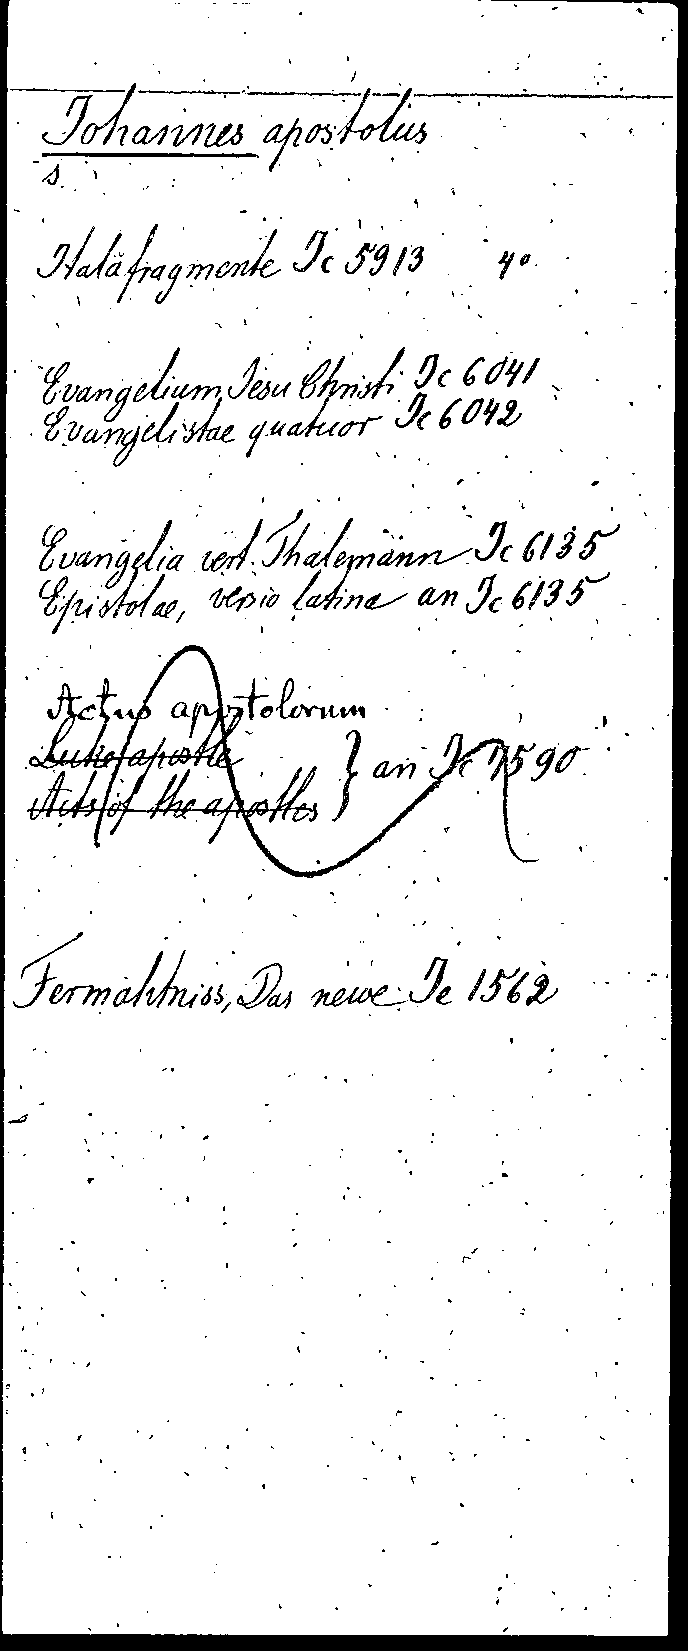 Johannes apostolus
s.
Italafragmente Ic 5913 4°
Evangelium Jesu Christi Ic 6041
Evangelistae quatuor Ic 6042
Evangelia vert. Thalemann Ic 6135
Epistolae, versio latina an Ic 6135
Actus apostolorum
Luke apostle
Acts of the apostles } an Ic 7590
Fermahtniss, Das neue Ie 1562